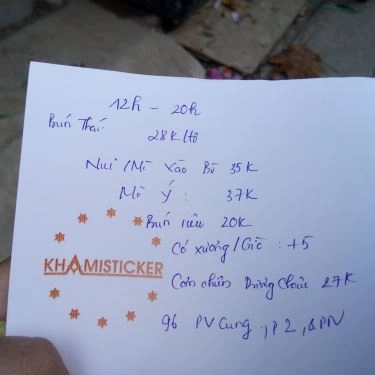 12h - 20h
Bún Thái
28K/tô
Nui/Mì Xào Bò 35K
Mì Ý : 37K
Bún riêu 20K
Có xương/Giò : +5
KHAMISTICKER
Cơm chiên Dương Châu 27K
96 PV Cung, P2, QPN